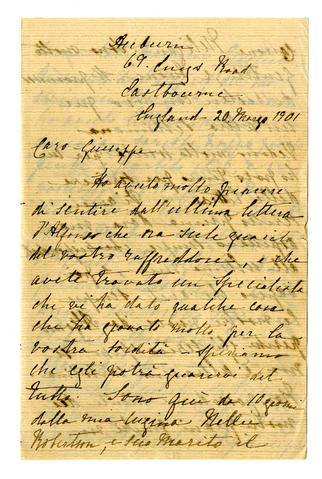 Auburn
69. Kings Road
Eastbourne
England 20. Marzo 1901
Caro Giuseppe
Ho avuto molto piacere
di sentire dall'ultima lettera
d'Alfonso che ora siete guarito
del vostro raffreddore, e che
avete trovato un specialista
che vi ha dato qualche cosa
che ha giovato molto per la
vostra sordità - speriamo
che egli potrà guarirvi del
tutto. Sono qui da 10 giorni
dalla mia cugina Nellie
Robertson, e suo marito il